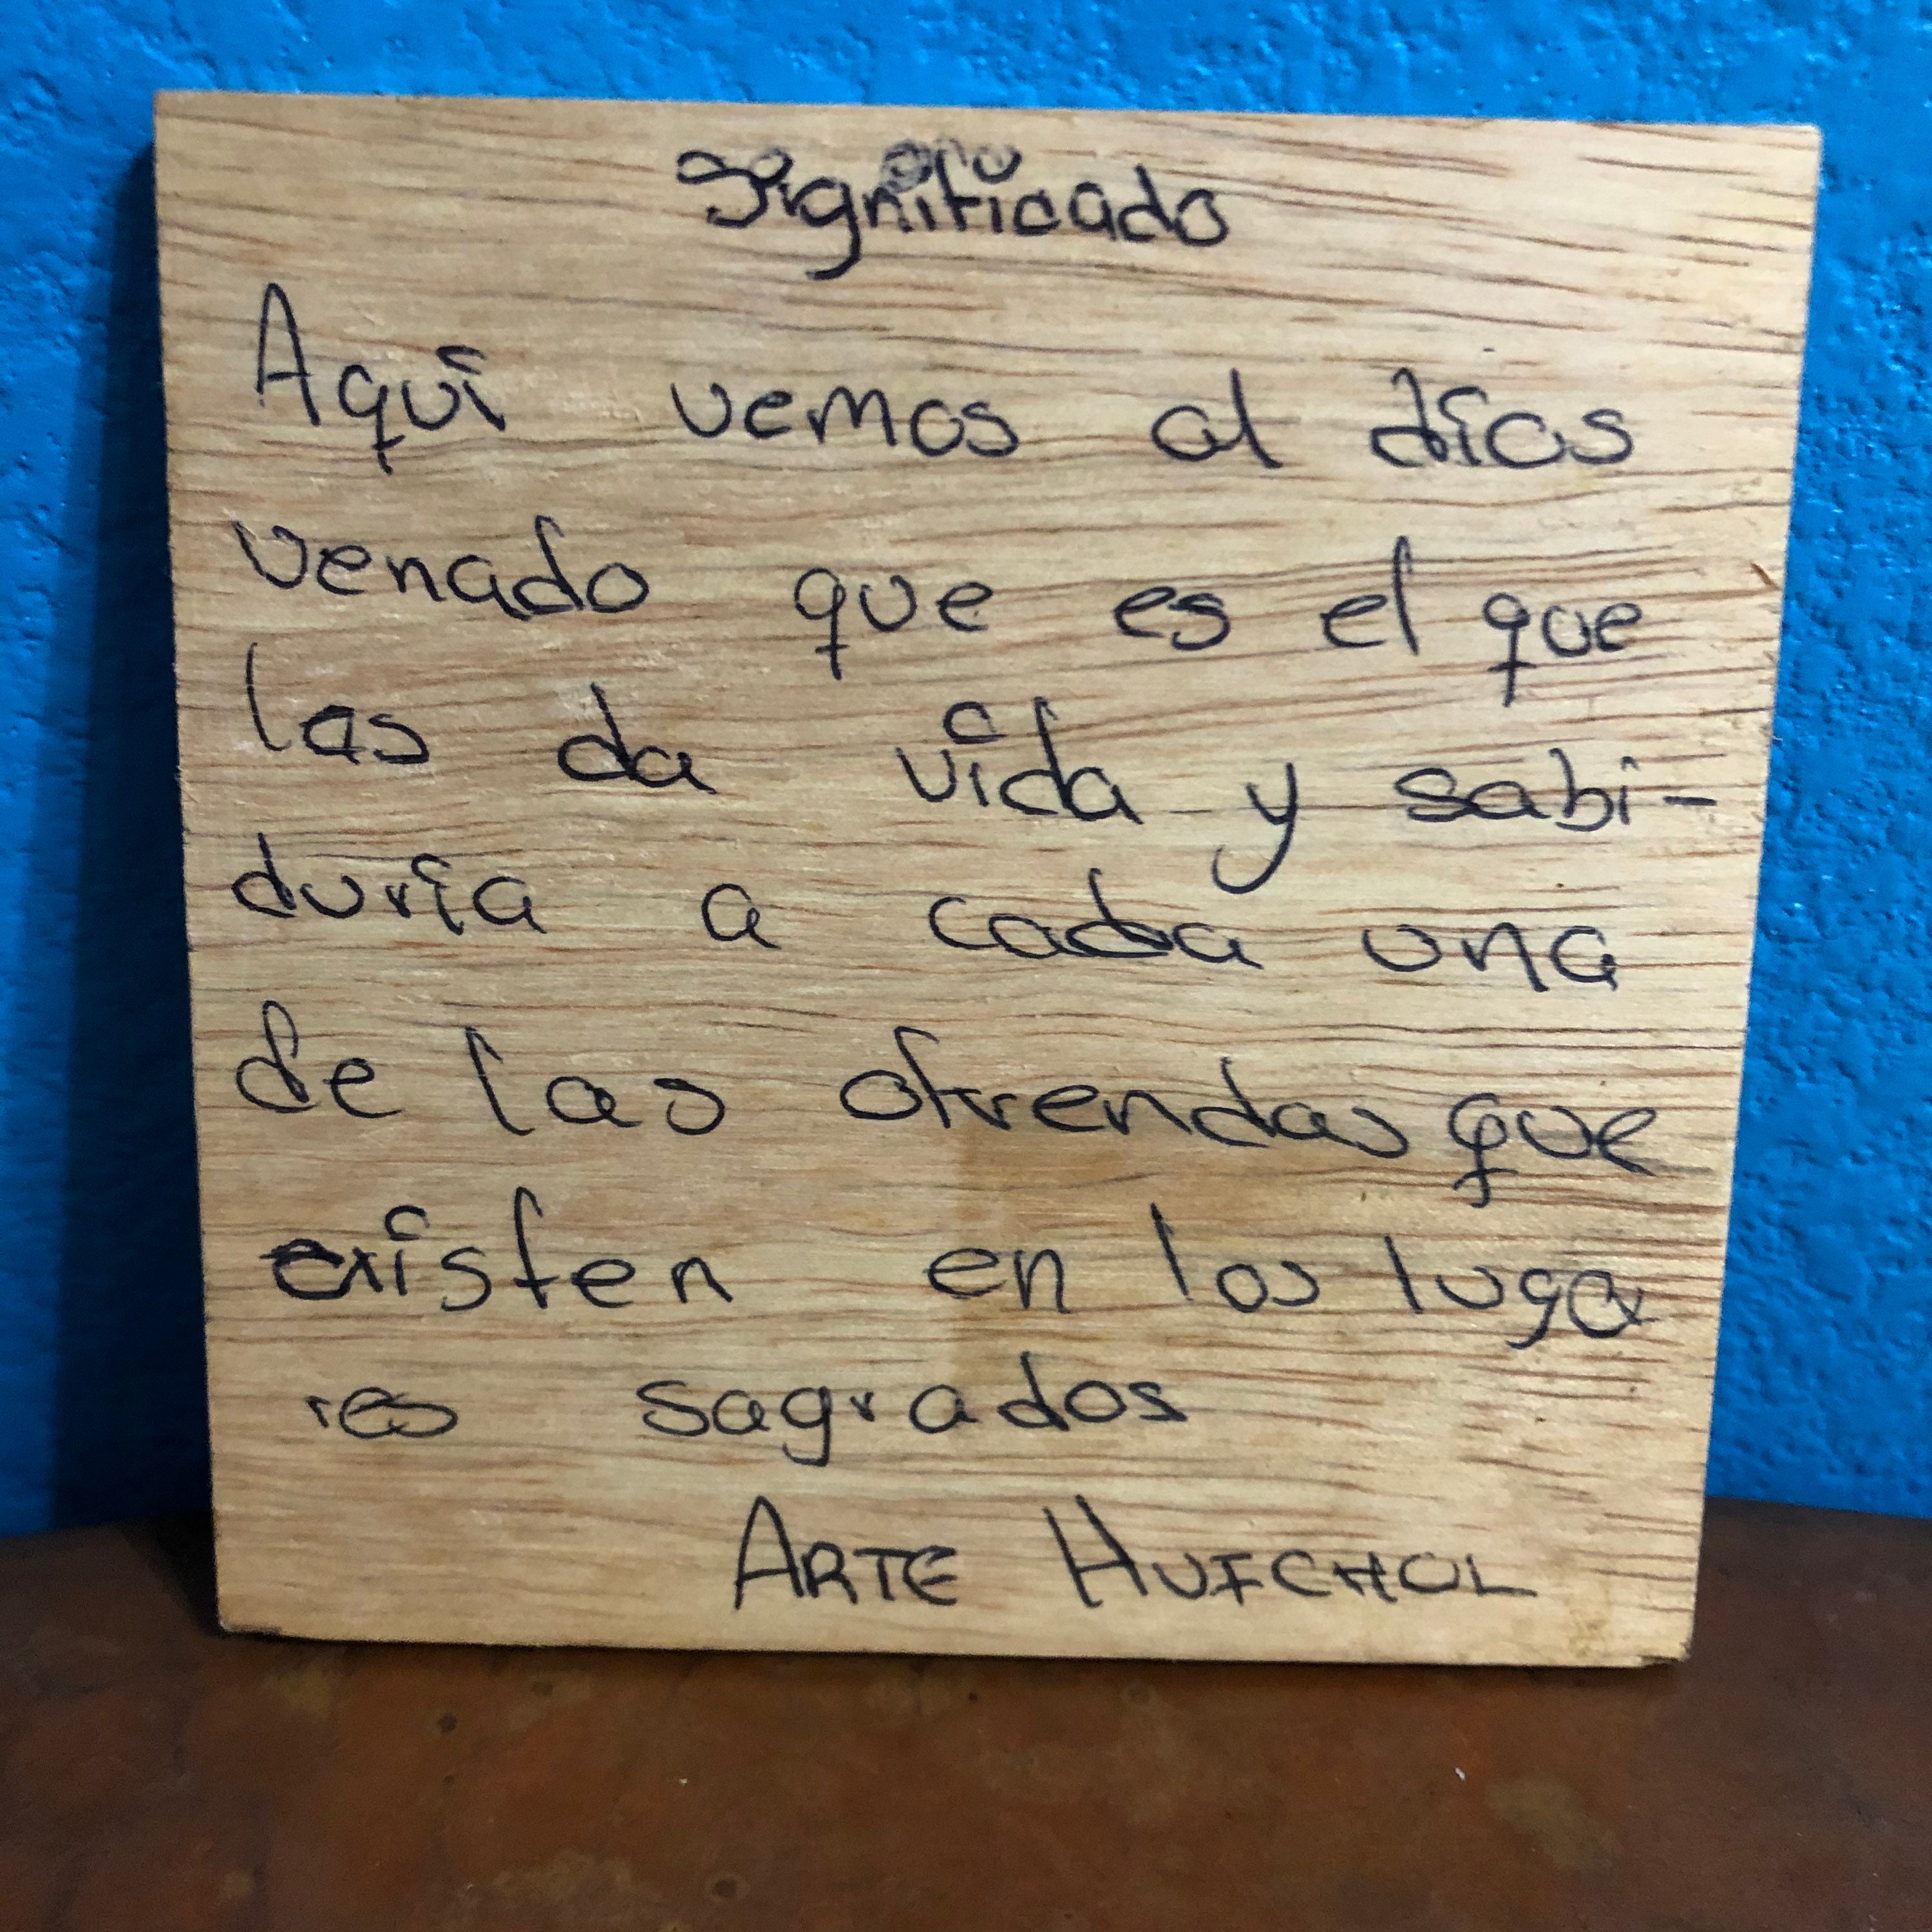 Significado
Aquí vemos al dios
venado que es el que
las da vida y sabi-
duría a cada una
de las ofrendas que
existen en los luga
res sagrados
ARTE HUICHOL